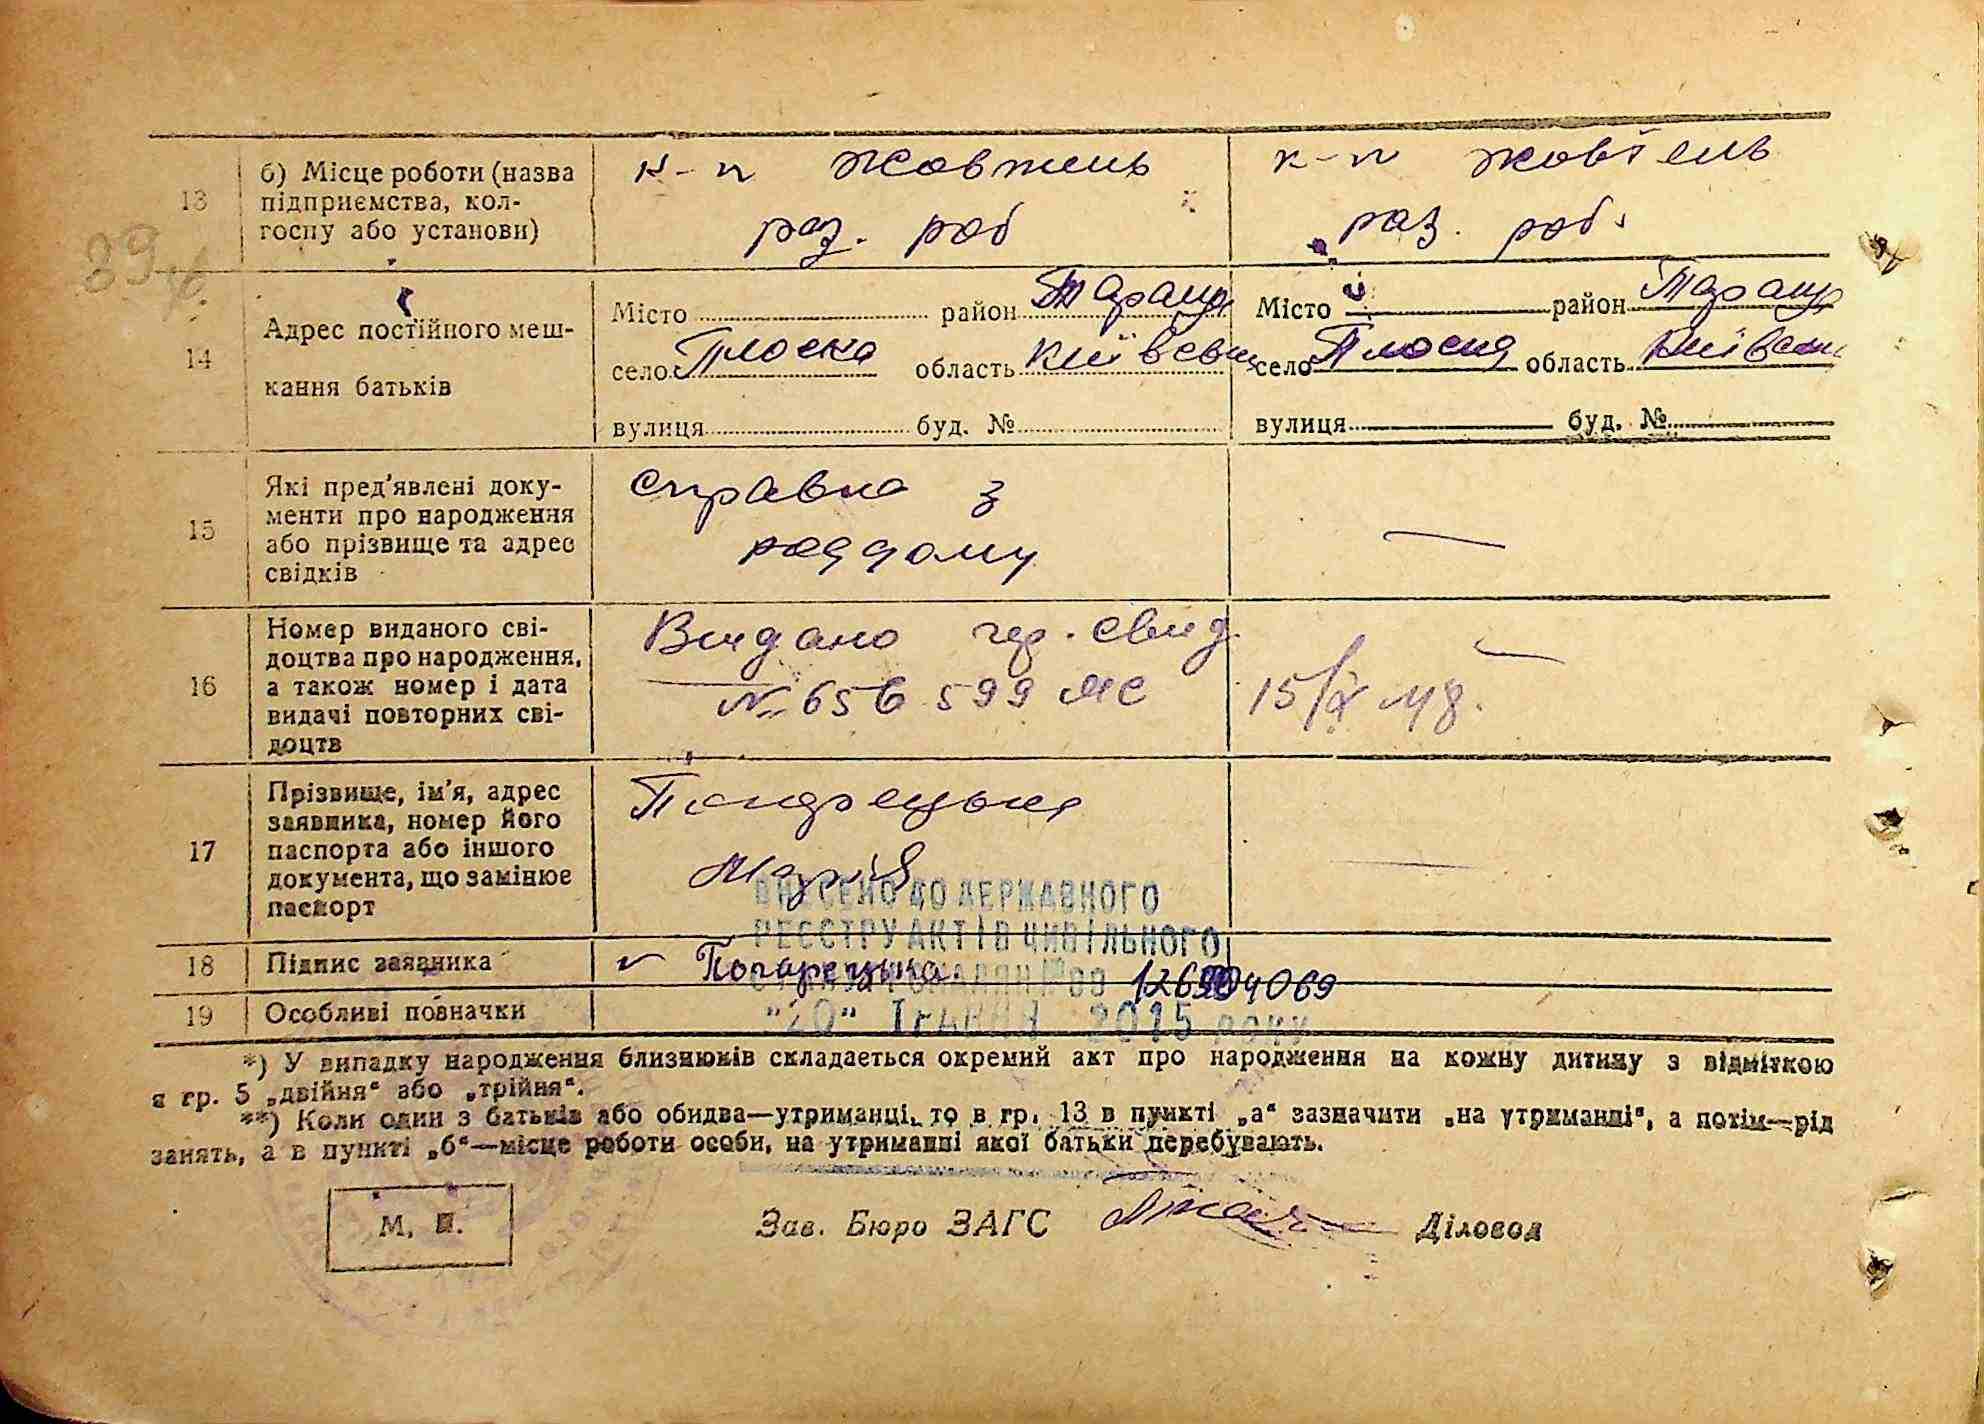 39
13 б) Місце роботи (назва підприємства, колгоспу або установи)
к-п Жовтень
раз. роб
к-п жовтень
раз. роб.
14 Адрес постійного мешкання батьків
Місто район Таращ
село Плоска область Київськ
вулиця буд. №
Місто район Таращ
село Плоска область Київськ
вулиця буд. №
15 Які пред'явлені документи про народження або прізвище та адрес свідків
Справка з
роддому
—
16 Номер виданого свідоцтва про народження, а також номер і дата видачі повторних свідоцтв
Видано свид.
№ 656599
15/IX 48.
17 Прізвище, ім'я, адрес заявника, номер його паспорта або іншого документа, що замінює паспорт
Марія
—
ВНЕСЕНО ДО ДЕРЖАВНОГО
РЕЄСТРУ АКТІВ ЦИВІЛЬНОГО
СТАНУ ГРОМАДЯН №00
"20" ТРАВНЯ 2015 року
18 Підпис заявника
19 Особливі позначки
*) У випадку народження близнюків складається окремий акт про народження на кожну дитину з відміткою
в гр. 5 „двійня“ або „трійня“.
**) Коли один з батьків або обидва—утриманці, то в гр. 13 в пункті „а“ зазначити „на утриманні“, а потім—рід
занять, а в пункті „б“—місце роботи особи, на утриманні якої батьки перебувають.
М. П.
Зав. Бюро ЗАГС Діловод